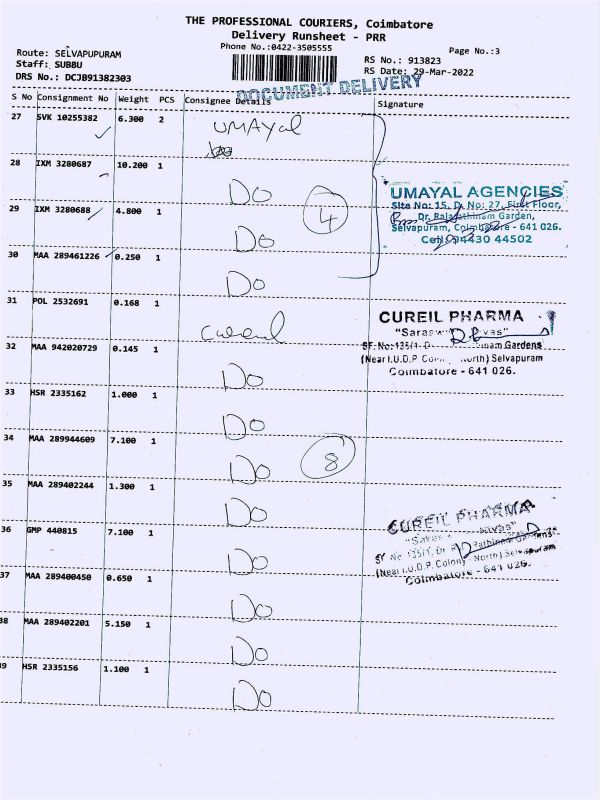 THE PROFESSIONAL COURIERS, Coimbatore
Delivery Runsheet - PRR
Phone No.:0422-3505555
Page No.:3
Route: SELVAPUPURAM
Staff: SUBBU
DRS No.: DCJB91382303
RS No.: 913823
RS Date: 29-Mar-2022
DOCUMENT DELIVERY
S No Consignment No Weight PCS Consignee Details Signature
27 SVK 10255382 6.300 2 UMAYal
28 IXM 3280687 10.200 1 Do
29 IXM 3280688 4.800 1 Do
30 MAA 289461226 0.250 1 Do
4
UMAYAL AGENCIES
Site No: 15, D. No: 27, First Floor,
Dr. Rajarathinam Garden,
Selvapuram, Coimbatore - 641 026.
Cell: 94430 44502
31 POL 2532691 0.168 1 Cureil
32 MAA 942020729 0.145 1 Do
33 HSR 2335162 1.000 1 Do
34 MAA 289944609 7.100 1 Do
8
35 MAA 289402244 1.300 1 Do
36 GMP 440815 7.100 1 Do
37 MAA 289400450 0.650 1 Do
38 MAA 289402201 5.150 1 Do
39 HSR 2335156 1.100 1 Do
CUREIL PHARMA
SF. No:135/1, D
Gardens
(Near I.U.D.P North) Selvapuram
Coimbatore - 641 026.
CUREIL PHARMA
SF No 135/1, Dr
(Near I.U.D.P. Colony North) Selvapuram
Coimbatore - 641 026.